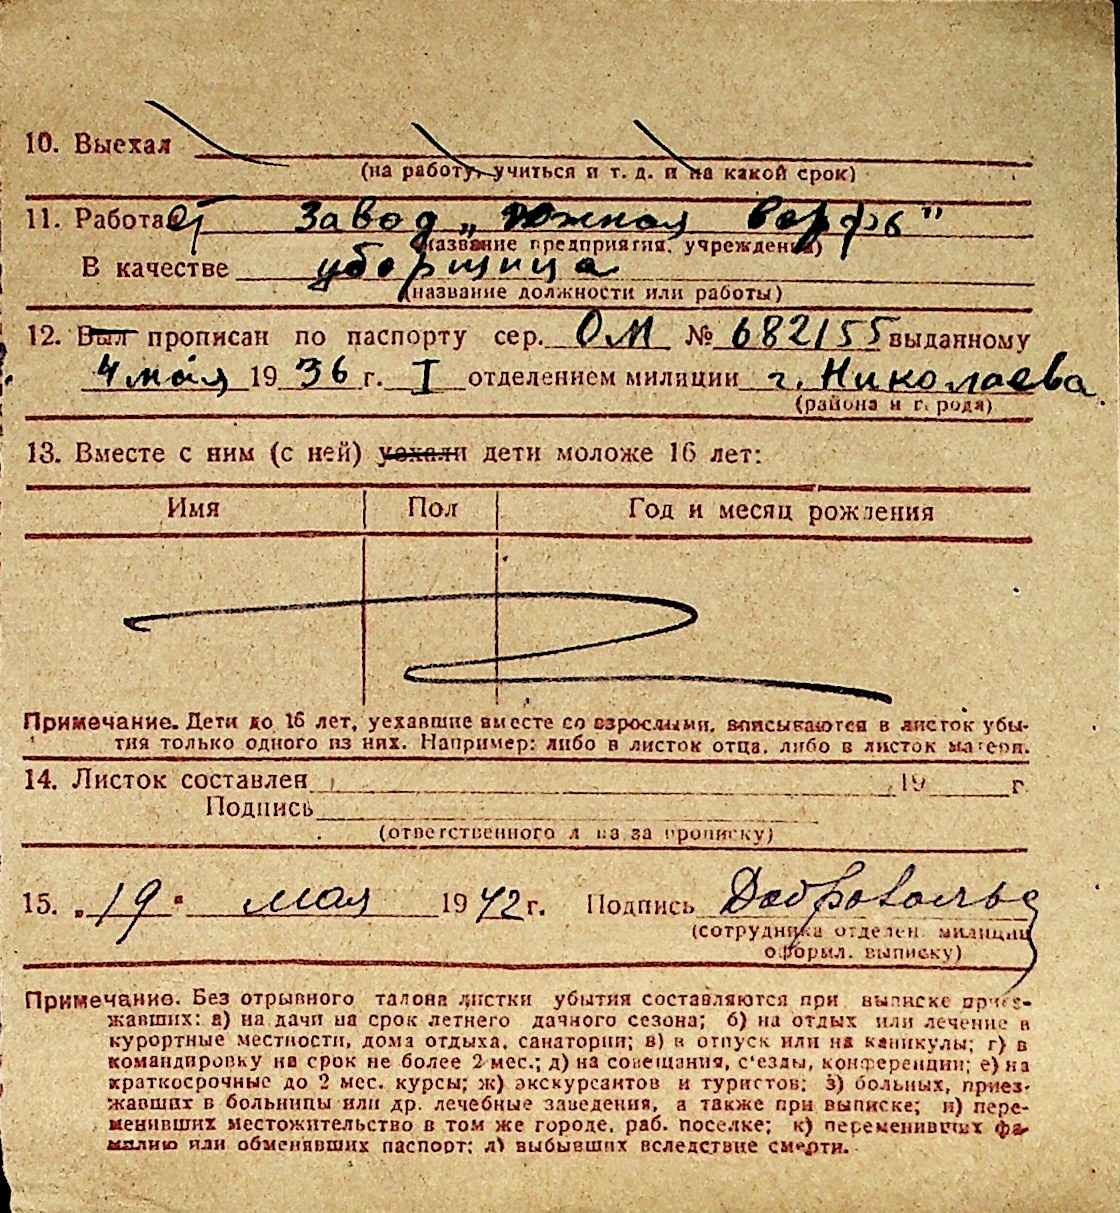 10. Выехал
(на работу, учиться и т. д. и на какой срок)
11. Работает Завод „Южная верфь"
(название предприятия, учреждения)
В качестве уборщица
(название должности или работы)
12. Был прописан по паспорту сер. ОМ № 682155 выданному
4 мая 1936 г. I отделением милиции г. Николаева.
(района и города)
13. Вместе с ним (с ней) уехали дети моложе 16 лет:
Имя Пол Год и месяц рождения
Примечание. Дети до 16 лет, уехавшие вместе со взрослыми, вписываются в листок убы-
тия только одного из них. Например: либо в листок отца, либо в листок матери.
14. Листок составлен 19 г.
Подпись
(ответственного лица за прописку)
15. „19" мая 1942 г. Подпись Добровольс
(сотрудника отделен. милиции
оформл. выписку)
Примечание. Без отрывного талона листки убытия составляются при выписке приез-
жавших: а) на дачи на срок летнего дачного сезона; б) на отдых или лечение в
курортные местности, дома отдыха, санатории; в) в отпуск или на каникулы; г) в
командировку на срок не более 2 мес.; д) на совещания, с'езды, конференции; е) на
краткосрочные до 2 мес. курсы; ж) экскурсантов и туристов; з) больных, приез-
жавших в больницы или др. лечебные заведения, а также при выписке; и) пере-
менивших местожительство в том же городе, раб. поселке; к) переменивших фа-
милию или обменявших паспорт; л) выбывших вследствие смерти.